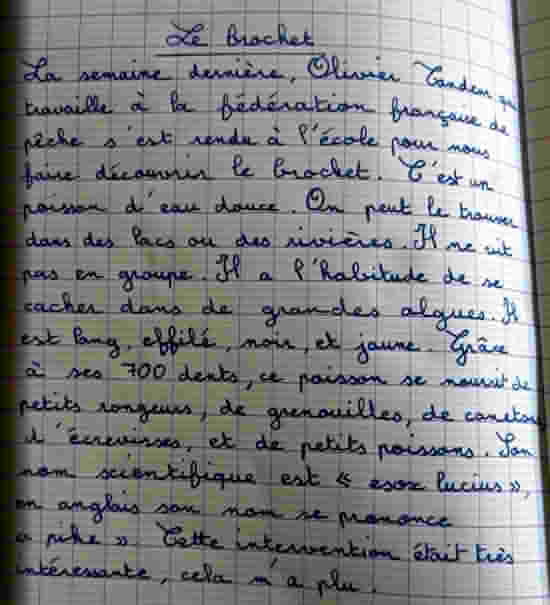 Le Brochet
La semaine dernière, Olivier Tandem qui
travaille à la fédération française de
pêche s'est rendu à l'école pour nous
faire découvrir le brochet. C'est un
poisson d'eau douce. On peut le trouver
dans des lacs ou des rivières. Il ne vit
pas en groupe. Il a l'habitude de se
cacher dans de grandes algues. Il
est long, effilé, noir, et jaune. Grâce
à ses 700 dents, ce poisson se nourrit de
petits rongeurs, de grenouilles, de canetons
d'écrevisses, et de petits poissons. Son
nom scientifique est « esox lucius »,
en anglais son nom se prononce
« pike ». Cette intervention était très
intéressante, cela m'a plu.